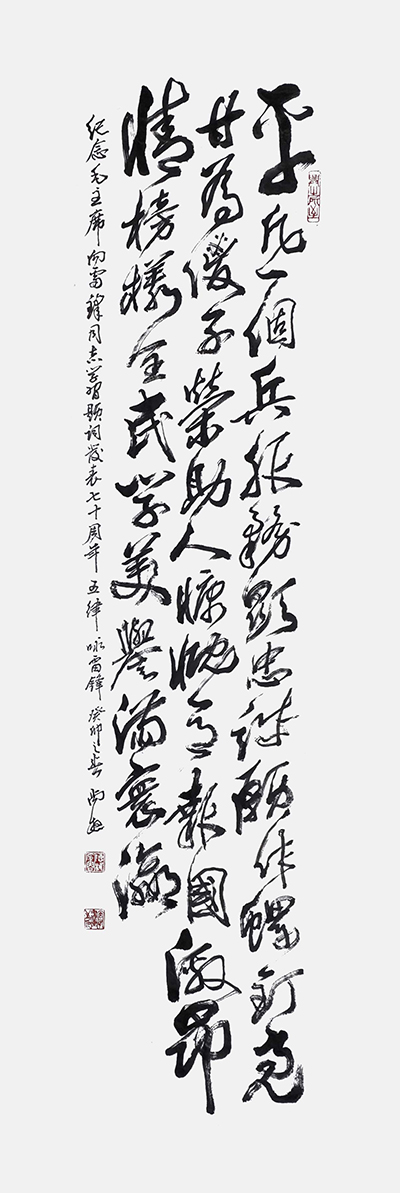 平凡一個兵服務顯忠誠願作螺釘亮
甘為傻子榮助人慷慨事報國激昂
情榜樣全民學美譽滿寰瀛
纪念毛主席向雷鋒同志学習題詞發表七十周年 五律 咏雷鋒 癸卯之春 尚